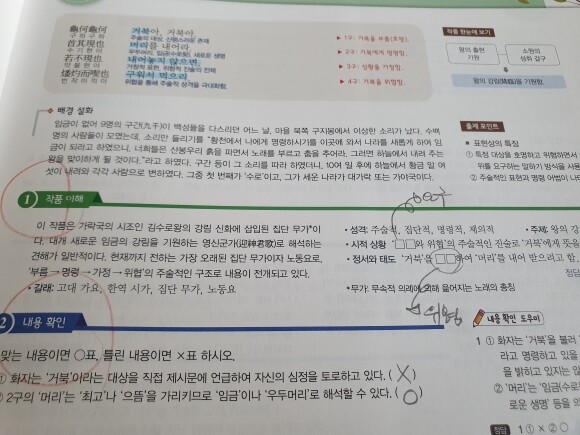 龜何龜何
구하구하
거북아, 거북아
주술의 대상, 신령스러운 존재
▶ 1구: 거북을 부름(호명).
首其現也
수기현야
머리를 내어라.
우두머리, 임금(수로왕), 새로운 생명
▶ 2구: 거북에게 명령함.
若不現也
약불현야
내어놓지 않으면,
가정적 표현, 위협적 진술의 전제
▶ 3구: 상황을 가정함.
燔灼而喫也
번작이끽야
구워서 먹으리
위협을 통해 주술적 성격을 극대화함.
▶ 4구: 거북을 위협함.
작품 한눈에 보기
왕의 출현 기원
소원의 성취 강구
왕의 강림(降臨)을 기원함.
배경 설화
임금이 없어 9명의 구간(九干)이 백성들을 다스리던 어느 날, 마을 북쪽 구지봉에서 이상한 소리가 났다. 수백
명의 사람들이 모였는데, 소리만 들리기를 "황천에서 나에게 명령하시기를 이곳에 와서 나라를 새롭게 하여 임
금이 되라고 하였으니, 너희들은 산봉우리 흙을 파면서 노래를 부르고 춤을 추어라. 그러면 하늘에서 내려 주는
왕을 맞이하게 될 것이다."라고 하였다. 구간 등이 그 소리를 따라 하였더니, 10여 일 후에 하늘에서 황금 알 여
섯이 내려와 각각 사람으로 변하였다. 그중 첫 번째가 '수로'이고, 그가 세운 나라가 대가락 또는 가야국이다.
출제 포인트
■ 표현상의 특징
① 특정 대상을 호명하고 위협하면서
위를 요구하는 말하기 방식을 사용
② 주술적인 표현과 명령 어법이 나
1 작품 이해
이 작품은 가락국의 시조인 김수로왕의 강림 신화에 삽입된 집단 무가*이
다. 대개 새로운 임금의 강림을 기원하는 영신군가(迎神君歌)로 해석하는
견해가 일반적이다. 현재까지 전하는 가장 오래된 집단 무가이자 노동요로,
'부름 → 명령 → 가정 → 위협'의 주술적인 구조로 내용이 전개되고 있다.
• 갈래: 고대 가요, 한역 시가, 집단 무가, 노동요
• 성격: 주술적, 집단적, 명령적, 제의적
• 주제: 왕의 강
• 시적 상황 '□□와 위협'의 주술적인 진술로 '거북'에게 뜻을
• 정서와 태도 '거북'을 □□하여 '머리'를 내어 받으려고 함.
정답
*무가: 무속적 의례에 의해 읊어지는 노래의 총칭
위협
2 내용 확인
맞는 내용이면 ○표, 틀린 내용이면 ×표 하시오.
① 화자는 '거북'이라는 대상을 직접 제시문에 언급하여 자신의 심정을 토로하고 있다. ( X )
② 2구의 '머리'는 '최고'나 '으뜸'을 가리키므로 '임금'이나 '우두머리'로 해석할 수 있다. ( O )
내용 확인 도우미
1 ① 화자는 '거북'을 불러
라고 명령하고 있을
을 밝히고 있지는 않
② '머리'는 '임금(수로
로운 생명' 등을 의
정답 1 ① × ② ○